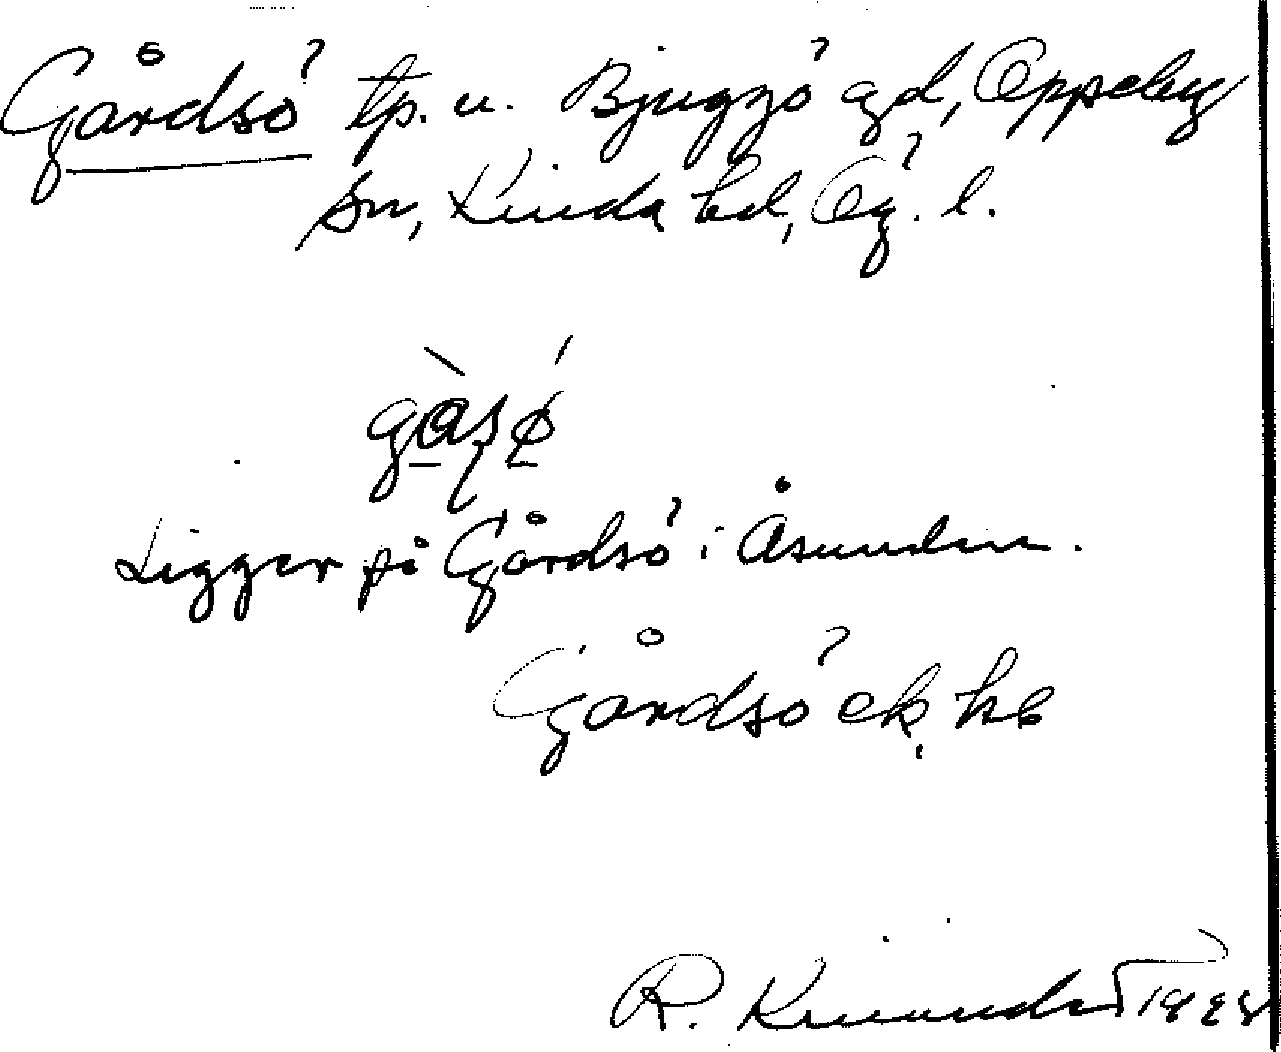 Gårdsö tp. u. Bjuggö gd, Oppeby
sn, Kinda hd, Ög. l.
Ligger på Gårdsö i Åsunden.
Gårdsö ek, hs
R.